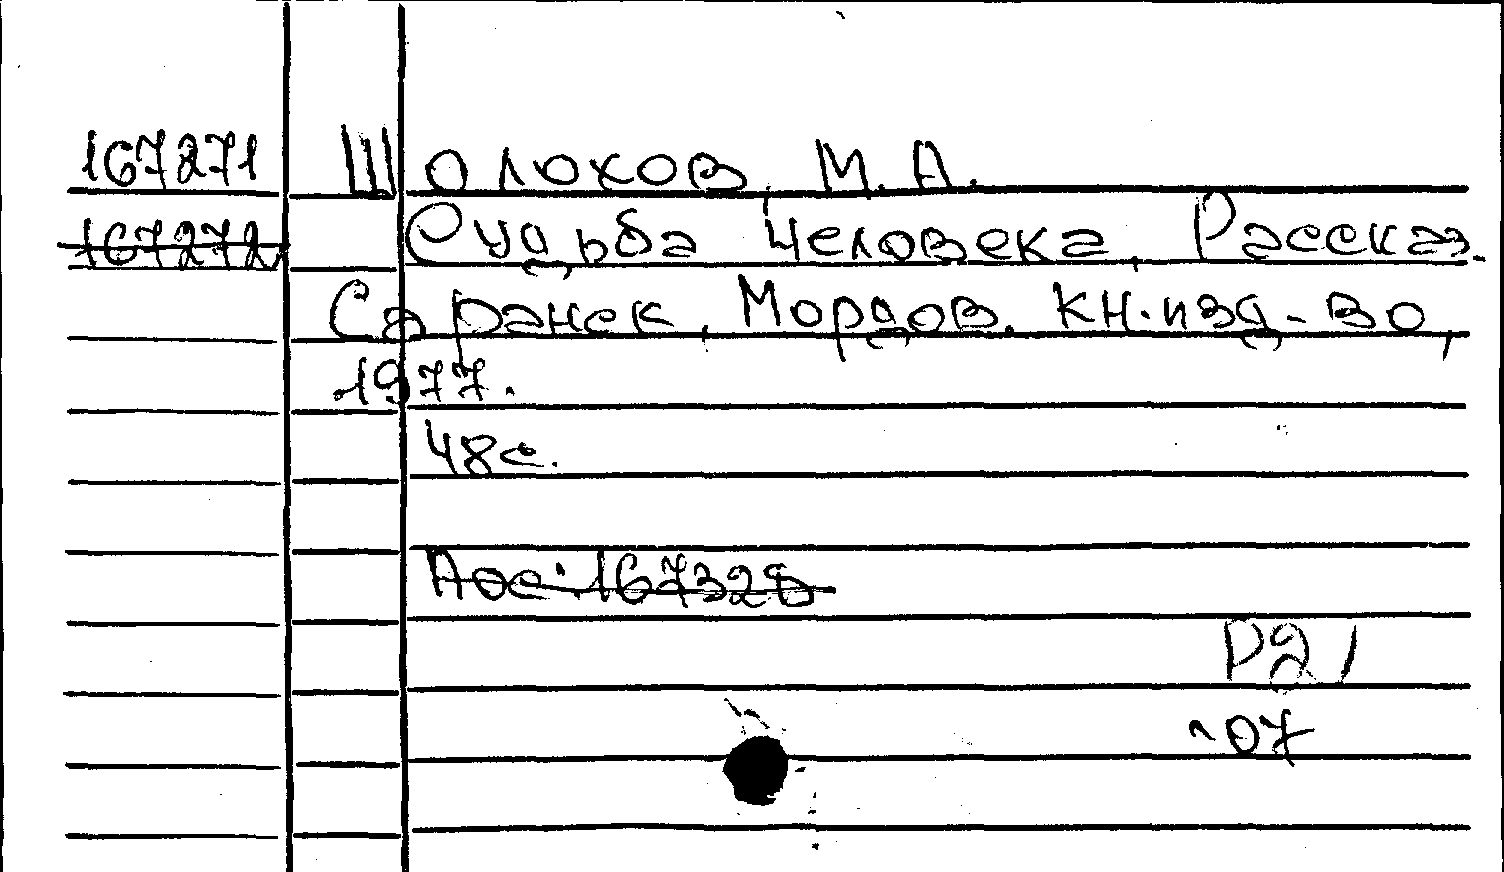 167271 Шолохов М. А.
167272 Судьба человека. Рассказ.
Саранск, Мордов. кн. изд-во,
1977.
48с.
Р2 /
07